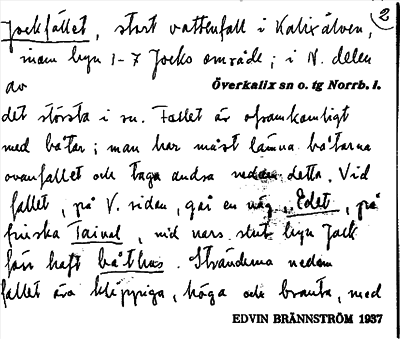 2
Jockfallet, stort vattenfall i Kalixälven,
inom byn 1-7 Jocks område; i N. delen
av Överkalix sn o. tg Norrb. l.
det största i sn. Fallet är oframkomligt
med båtar; man har måst lämna båtarna
ovanfallet och taga andra nedom detta. Vid
fallet, på V. sidan, går en väg, Edet, på
finska Taival, vid vars slut byn Jock
förr haft båthus. Stränderna nedom
fallet äro klippiga, höga och branta, med
EDVIN BRÄNNSTRÖM 1937